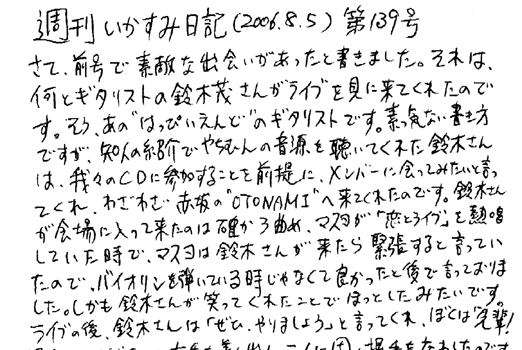 週刊いかすみ日記(2006.8.5) 第139号
さて、前号で素敵な出会いがあったと書きました。それは、
何とギタリストの鈴木茂さんがライブを見に来てくれたので
す。そう、あの"はっぴいえんど"のギタリストです。素気ない書き方
ですが、知人の紹介でやちむんの音源を聴いてくれた鈴木さん
は、我々のCDに参加することを前提に、メンバーに会ってみたいと言っ
てくれ、わざわざ赤坂の"OTONAMI"へ来てくれたのです。鈴木さん
が会場に入って来たのは確か3曲め、マスヨが「恋とライブ」を熱唱
していた時で、マスヨは鈴木さんが来たら緊張すると言ってい
たので、バイオリンを弾いている時じゃなくて良かったと後で言っておりま
した。しかも鈴木さんが笑ってくれたことでほっとしたみたいです。
ライブの後、鈴木さんは「ぜひ、やりましょう」と言ってくれ、ぼくは"先輩!